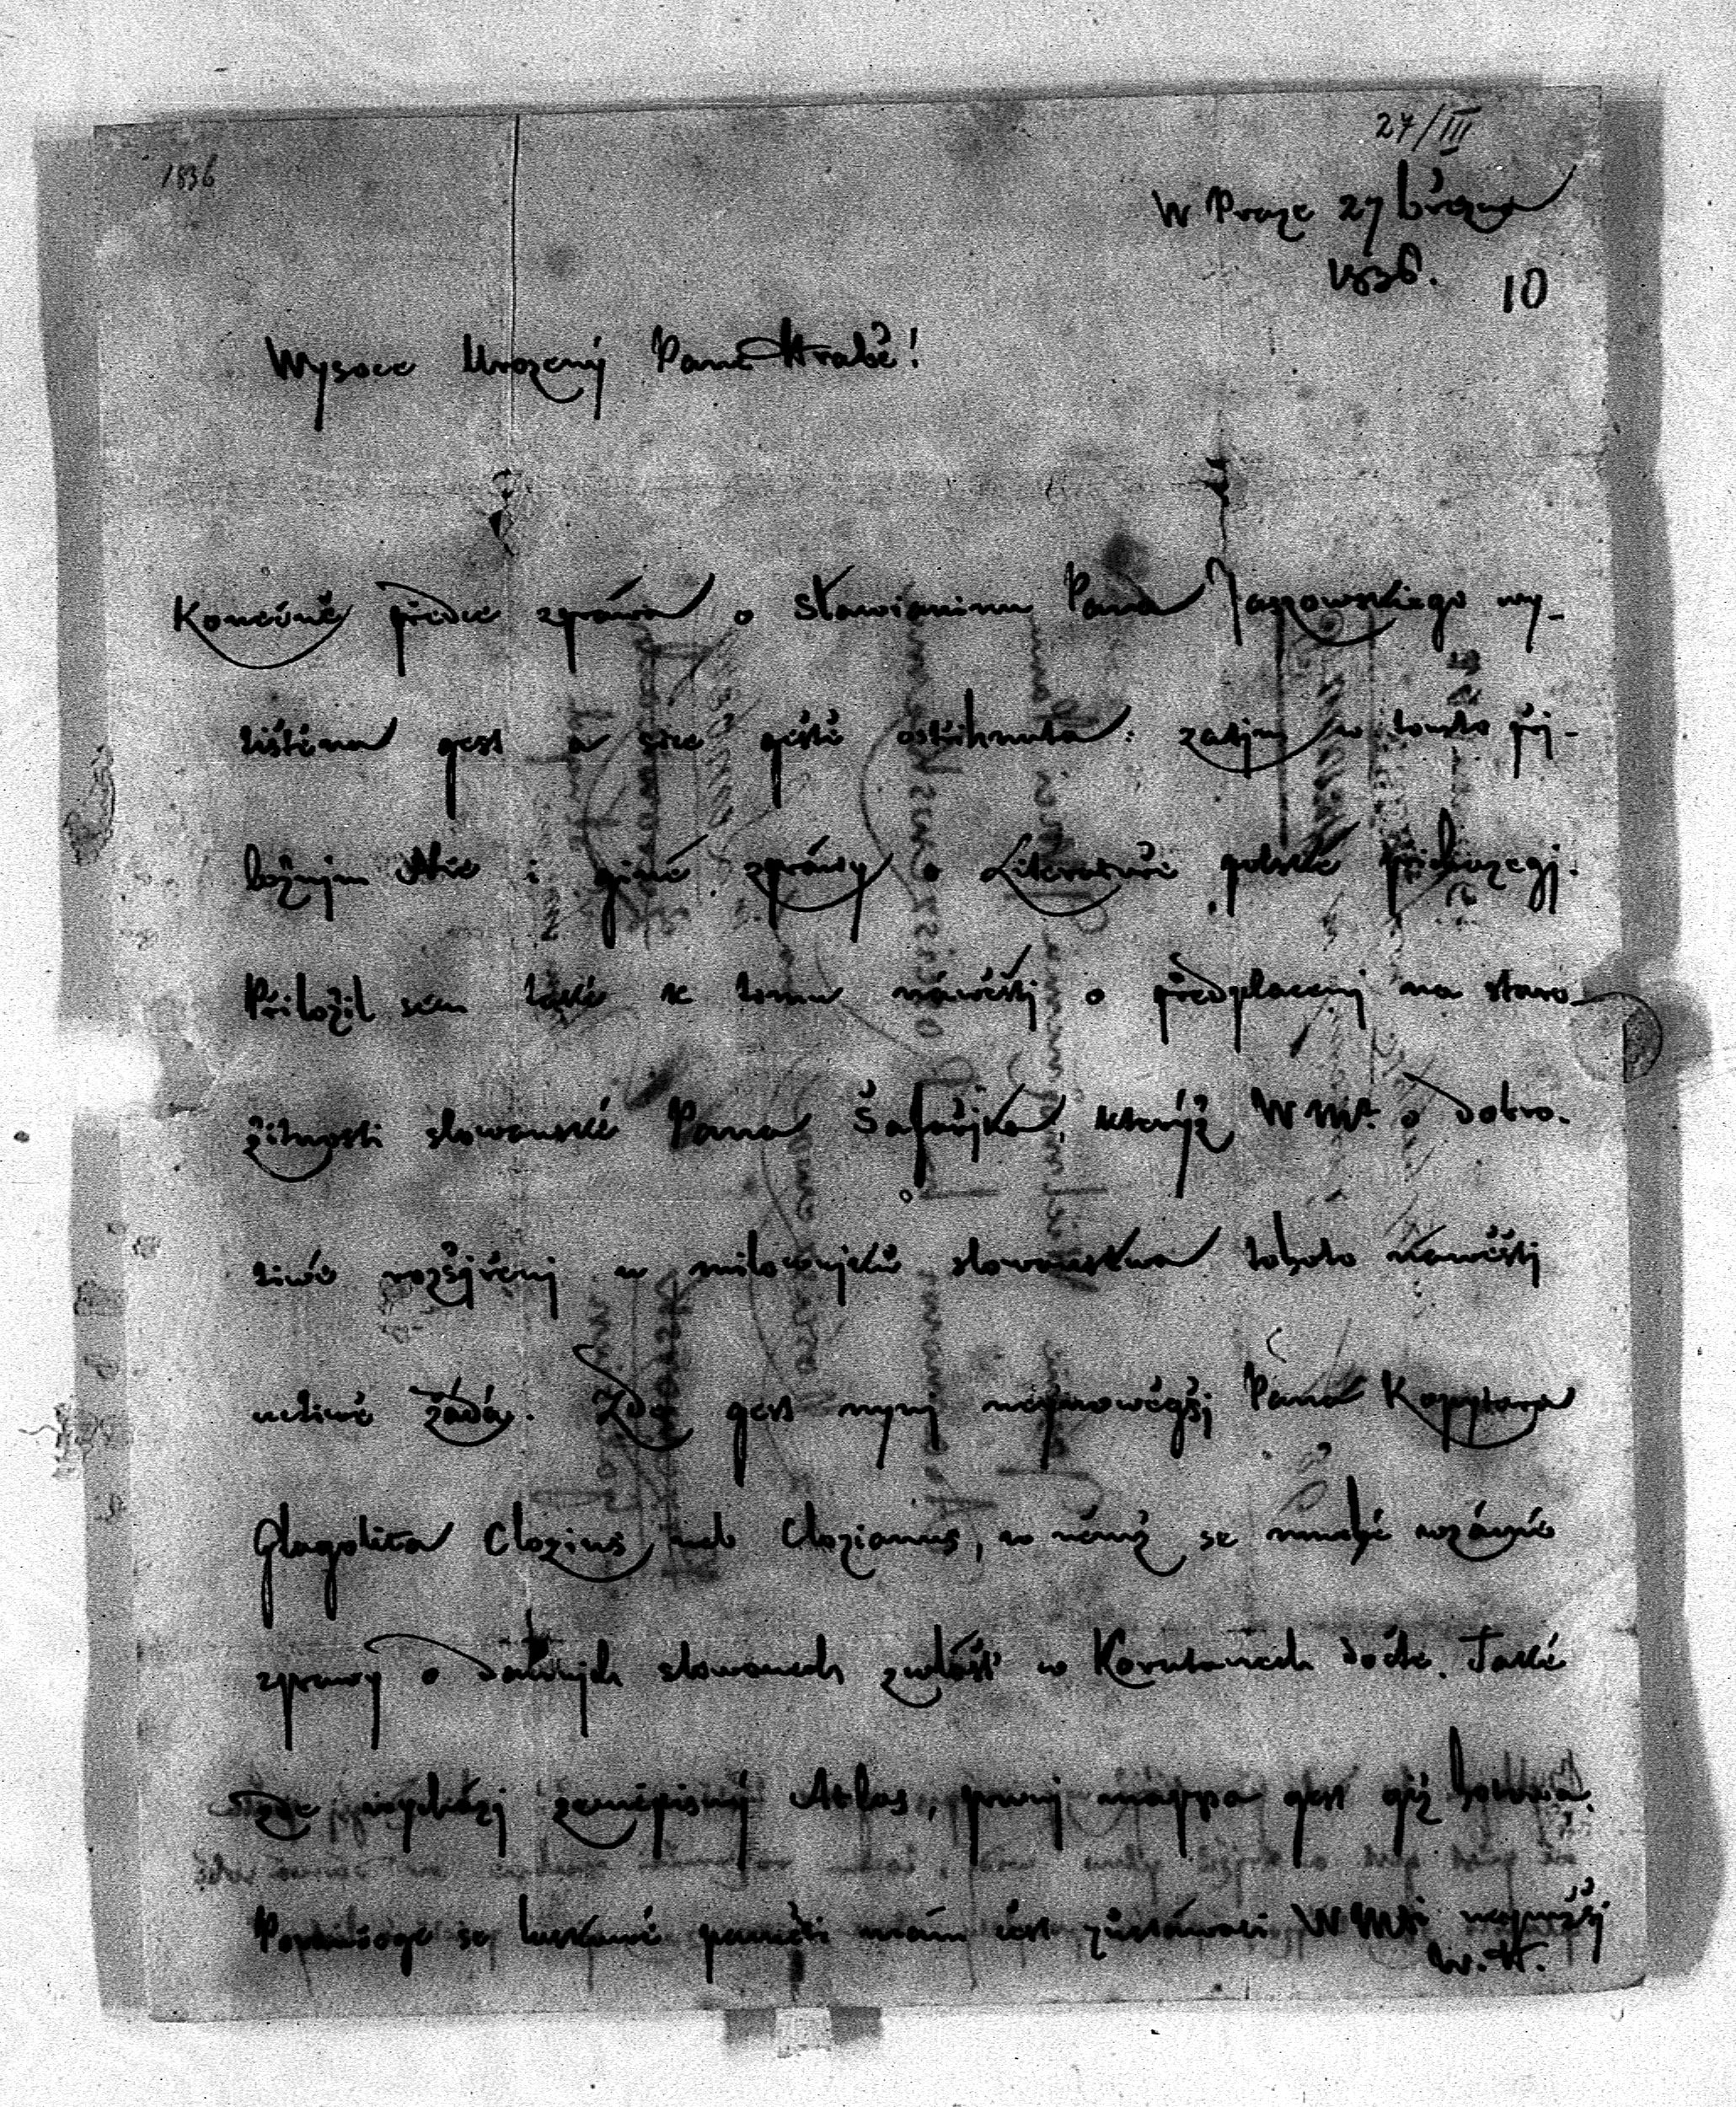 27/III
1836
W Praze 27 března
1836. 10
Wysoce Urozený Pane Hrabě!
Konečně předce zpráwa o Sławianinu Pana Jaszowskiego wy-
tištěna gest a sice geště ostřihnuta: zatjm w tomto při-
ložnjm Nře i giné zpráwy o Literatuře polské přicházegj.
Přiložil sem také k tomu náwěštj o předplacenj na staro-
žitnosti slowanské Pana Šafařjka, kterýž W Mti o dobro-
tiwé rozšjřenj u milownjků slowanstwa tohoto náwěštj
uctiwě žádá. Zde gest nynj neynowěgšj Pana Kopytara
Glagolita Clozius neb Clozianus, w němž se mnohé wzácné
zprawy o dáwných slowanech zwlášť w Korutanech dočte. Také
zde wycházj zeměpisný Atlas, prwnj mappa gest giž hotowa.
Poraučege se laskawé paměti mám čest zůstáwati W Mti neynižšj
W. H.